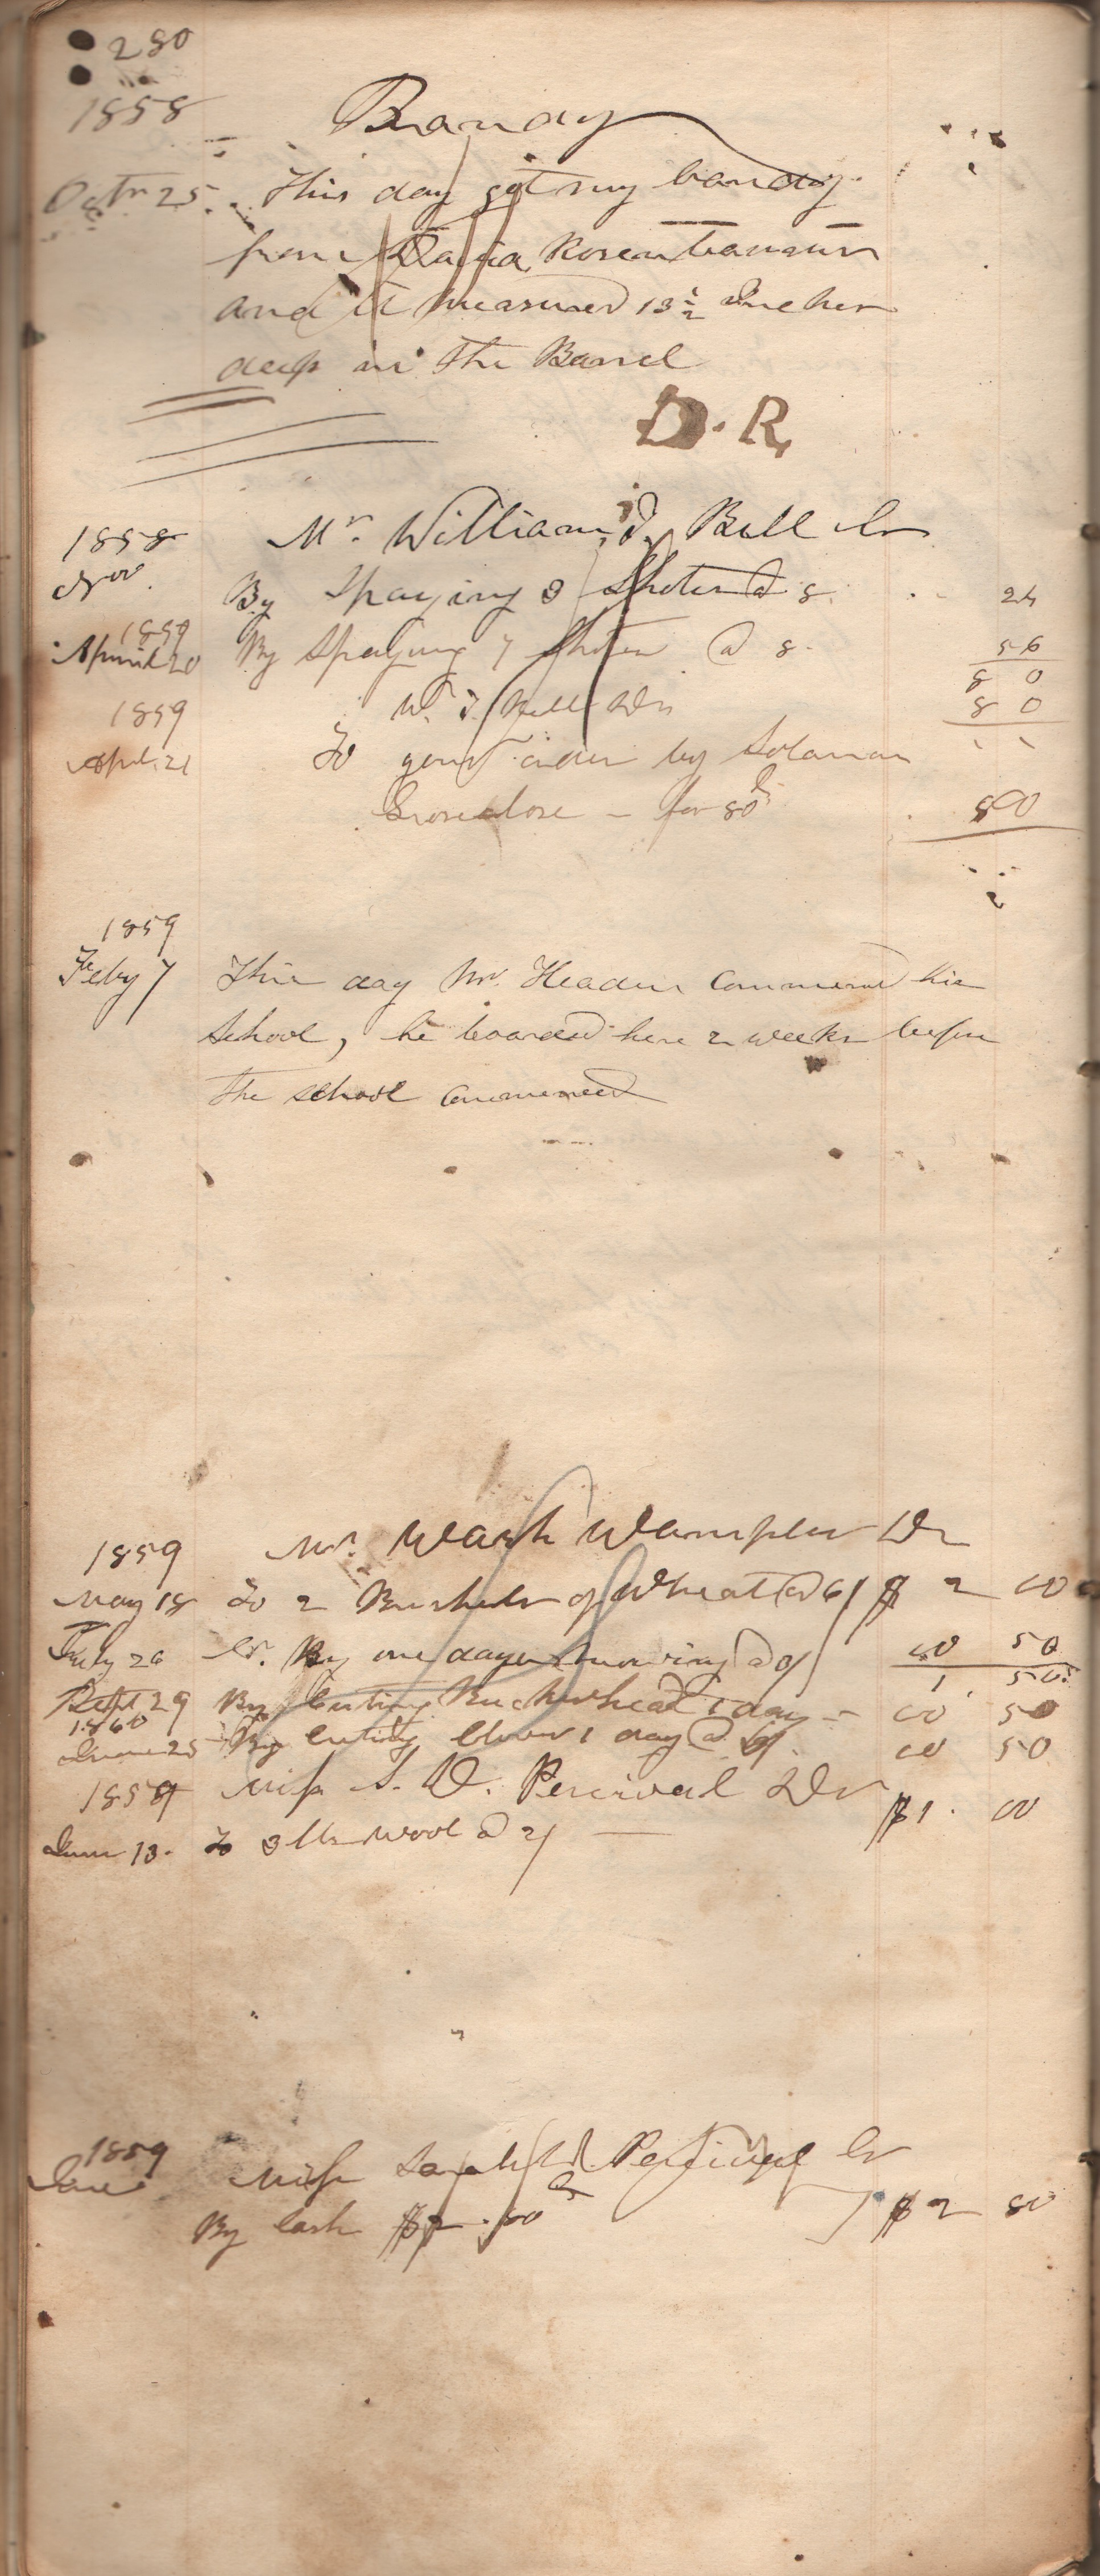 280
1858 Brandy
Octr 25. This day got my brandy
from David Rosenbaum
and it measured 13 1/2 Inches
deep in the Barrel
D. R.
1858 Mr. William J. Bell Cr
Nov. By Spaying 3 Shotes @ 8. 24
1859
April 20 By Spaying 7 Shotes @ 8. 56
80
W. J. Bell Dr 80
1859
Apl. 21 To your order by Soloman
Groseclose – for 80 cts 80
1859
Feby 7 This day Mr. Header Commenced his
School, he boarded here 2 weeks before
the school commenced
1859 Mr. Wash Wampler Dr
May 18 To 2 Bushels of Wheat @ 6/ $ 2 00
July 26 Cr. By one days mowing @ 3/ 00 50
1 50
Sept 29 By Cutting Buckwheat 1 day – 00 50
1860
June 25 By cutting Clover 1 day @ 00 50
1859 Miss S. D. Percival Dr
June 13. To 3 lbs wool @ 2/ — $1. 00
1859
June Miss Sarah D. Percival Cr
By Cash $2.80 cts $2 80